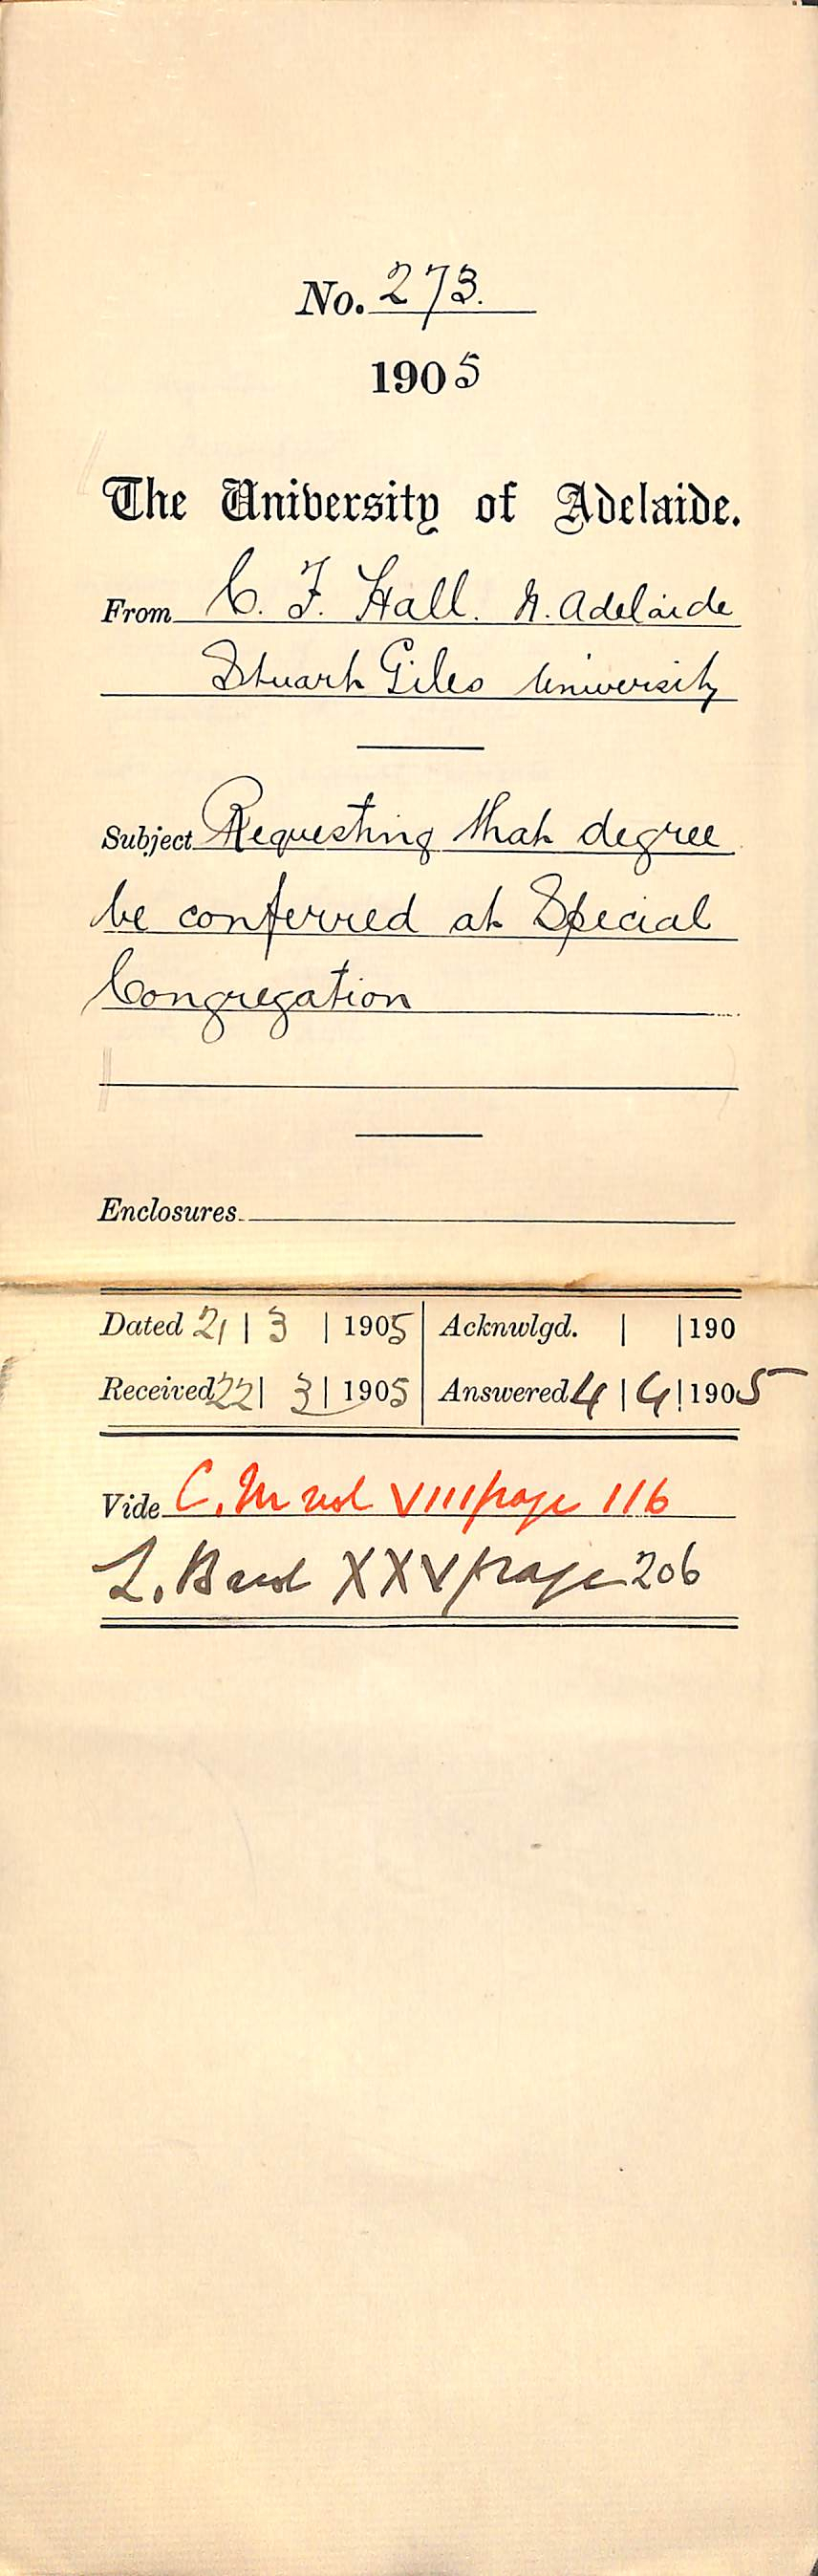 No. 273.
1905
The University of Adelaide.
From C. F. Hall. N. Adelaide
Stuart Giles University
Subject Requesting that degree
be conferred at Special
Congregation
Enclosures
Dated 21 | 3 | 1905 | Acknwlgd. | | 190
Received 22 | 3 | 1905 | Answered 4 | 4 | 1905
Vide C. M vol VIII page 116
L. B vol XXV page 206